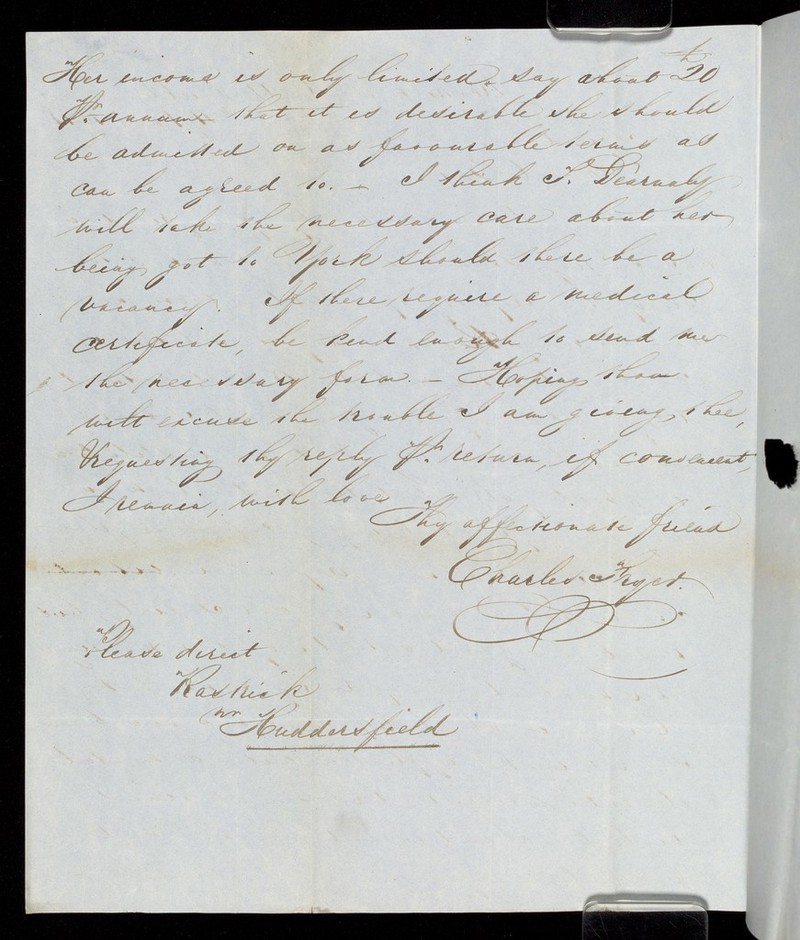 Her income is only limited say about £20
Pr. annum that it is desirable she should
be admitted on as favourable terms as
can be agreed to. – I think T. Dearnaly
will take the necessary care about her
being got to York should there be a
vacancy. If there require a medical
certificate, be kind enough to send me
the necessary form. – Hoping thou
will excuse the trouble I am giving thee,
& requesting thy reply Pr. return, if convenient,
I remain, with love
Thy affectionate friend
Charles
Please direct
Rastrick
nr Huddersfield